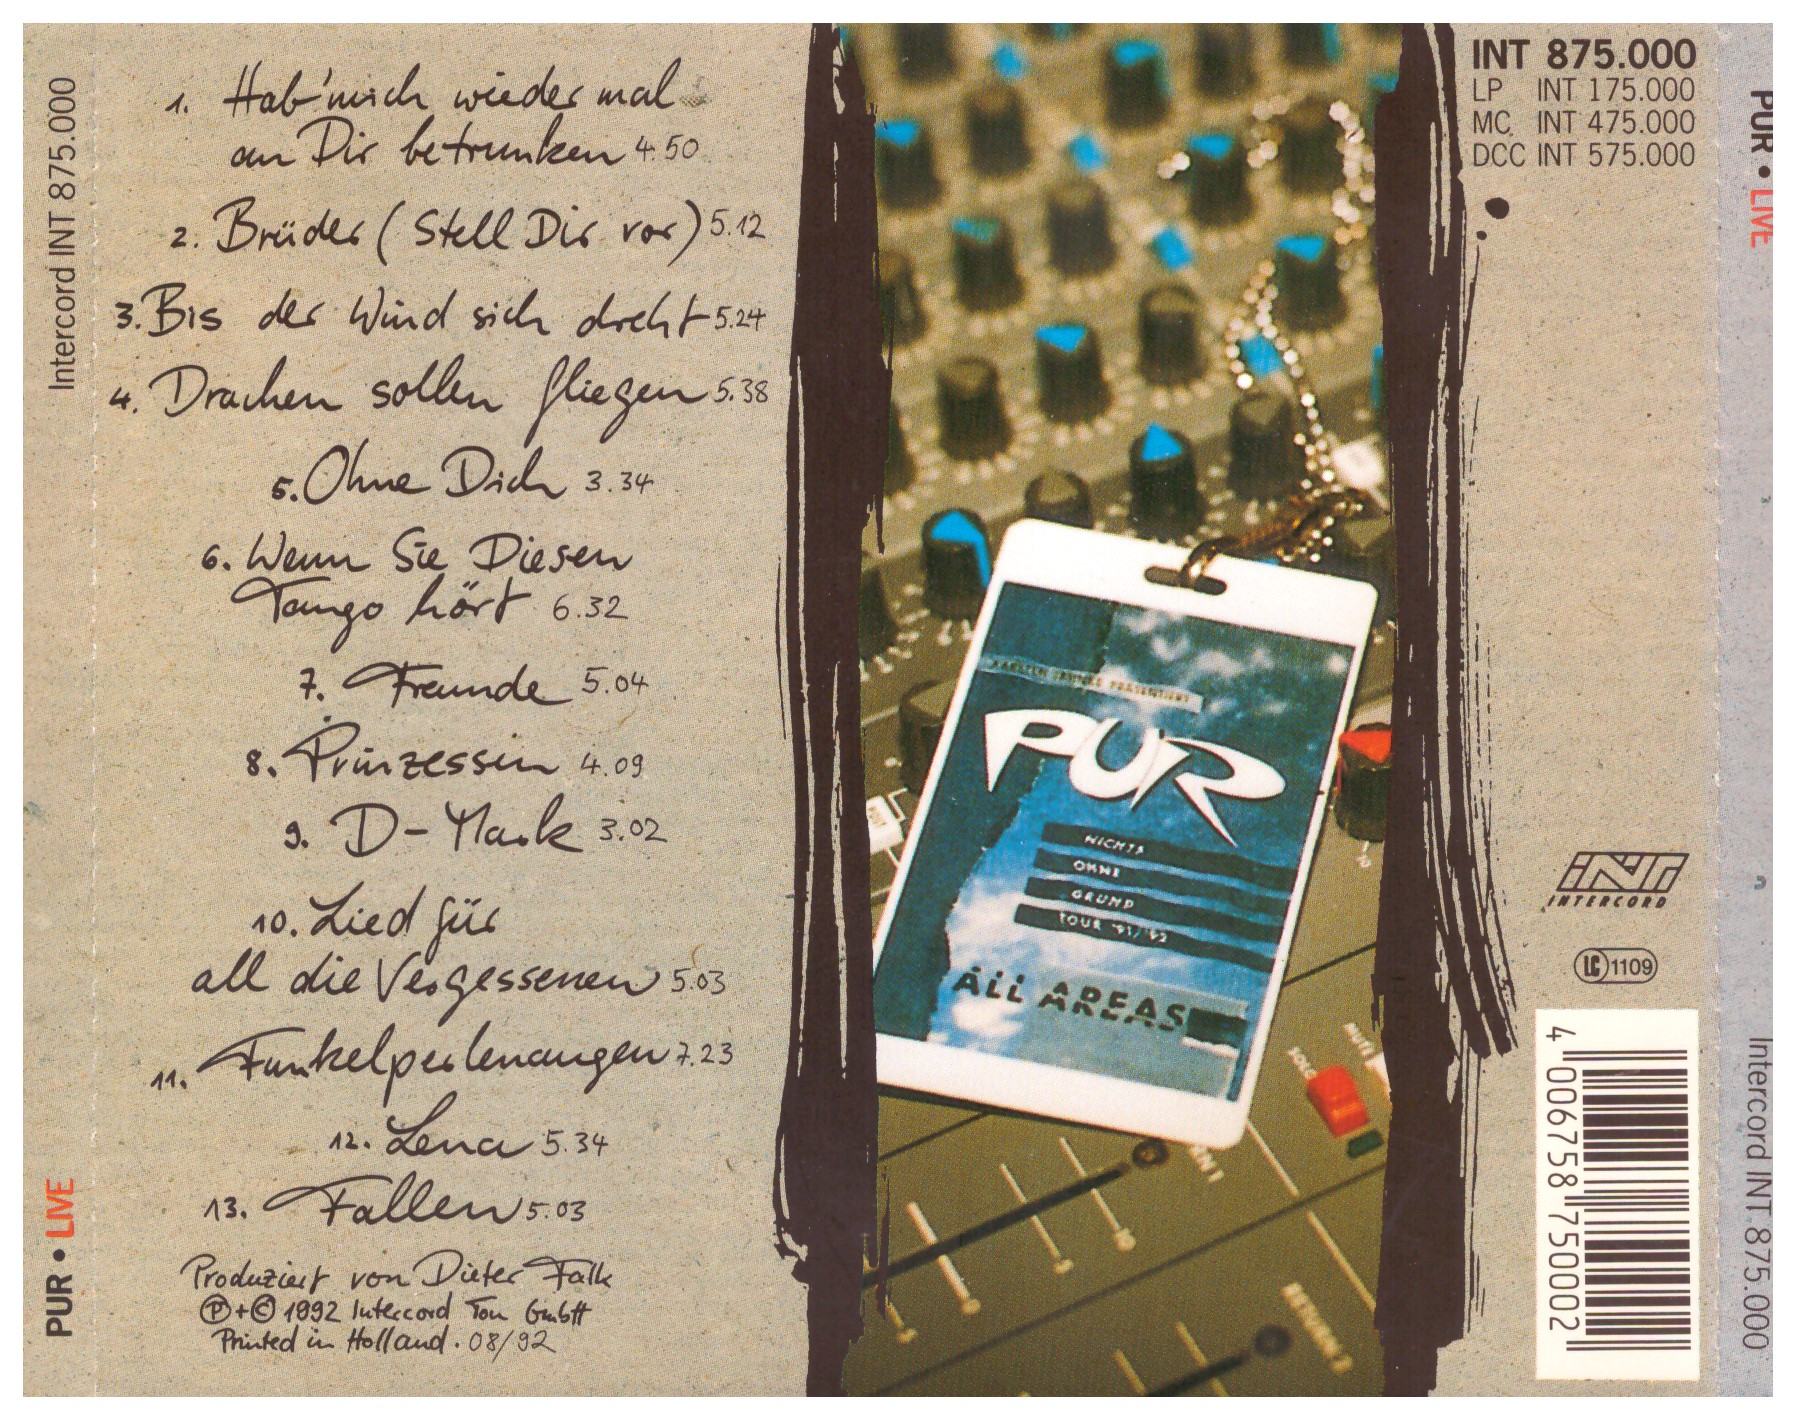 Intercord INT 875.000
PUR • LIVE
1. Hab' mich wieder mal
an Dir betrunken 4.50
2. Brüder (Stell Dir vor) 5.12
3. Bis der Wind sich dreht 5.24
4. Drachen sollen fliegen 5.38
5. Ohne Dich 3.34
6. Wenn Sie Diesen
Tango hört 6.32
7. Freunde 5.04
8. Prinzessin 4.09
9. D-Mark 3.02
10. Lied für
all die Vergessenen 5.03
11. Funkelperlenaugen 7.23
12. Lena 5.34
13. Fallen 5.03
Produziert von Dieter Falk
Ⓟ+© 1992 Intercord Ton GmbH
Printed in Holland. 08/92
PRÄSENTIERT
PUR
NICHTS
OHNE
GRUND
TOUR '91/'92
ALL AREAS
SOLO
MUTE
RETURN 2
INT 875.000
LP INT 175.000
MC INT 475.000
DCC INT 575.000
INT
INTERCORD
LC 1109
4 006758 750002
PUR • LIVE
Intercord INT 875.000